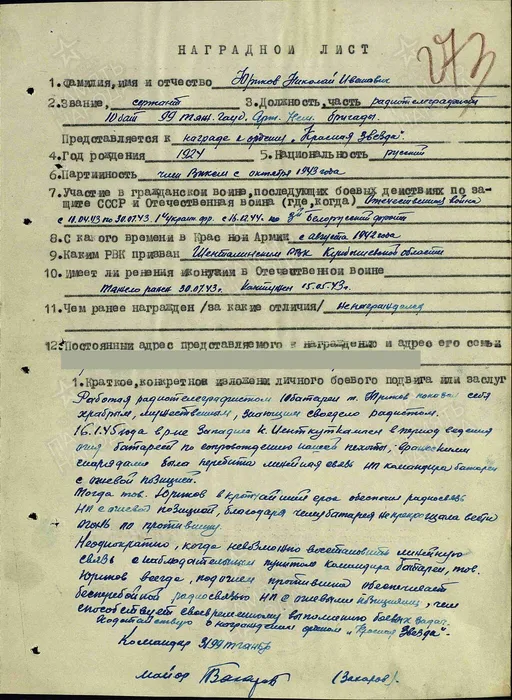 273
НАГРАДНОЙ ЛИСТ
1. Фамилия, имя и отчество Юртков Николай Иванович
2. Звание, сержант 3. Должность, часть радиотелеграфист
10 бат 99 тяж. гауб. Арт. бригады.
Представляется к награде к ордену "Красная Звезда".
4. Год рождения 1924 5. Национальность русский
6. Партийность член ВЛКСМ с октября 1943 года
7. Участие в гражданской войне, последующих боевых действиях по за-
щите СССР и Отечественная война (где, когда) Отечественная война
с 11.04.43 по 30.07.43. 1й украин. фр. с 16.12.44. по 3й Белорусский фронт
8. С какого времени в Крас ной Армии с августа 1942 года
9. Каким РВК призван Шенталинским РВК Куйбышевской области
10. Имеет ли ранения и контузии в Отечественной войне
Тяжело ранен 30.07.43г. Контужен 15.05.43г.
11. Чем ранее награжден /за какие отличия/ не награждался
12. Постоянный адрес представляемого к награждению и адрес его семьи
1. Краткое, конкретное изложени личного боевого подвига или заслуг
Работая радиотелеграфистом 10 батареи т. Юртков показал себя
храбрым, мужественным, знающим своё дело радистом.
16.1.45 года в р-не Западнее в период ведения
огня батареей по сопровождению нашей пехоты, вражескими
снарядами была перебита линейная связь НП командира батареи
с огневой позицией.
Тогда тов. Юртков в кротчайший срок обеспечил радиосвязь
НП с огневой позицией, благодаря чему батарея не прекращала вести
огонь по противнику.
Неоднократно, когда невозможно восстановить линейную
связь с наблюдательным пунктом командира батареи, тов.
Юртков всегда, под огнем противника обеспечивает
бесперебойной радиосвязью НП с огневыми позициями, чем
способствует своевременному выполнению боевых задач.
Ходатайствую о награждении орденом "Красная Звезда".
Командир 3/99 тгабр
майор Захаров (Захаров).